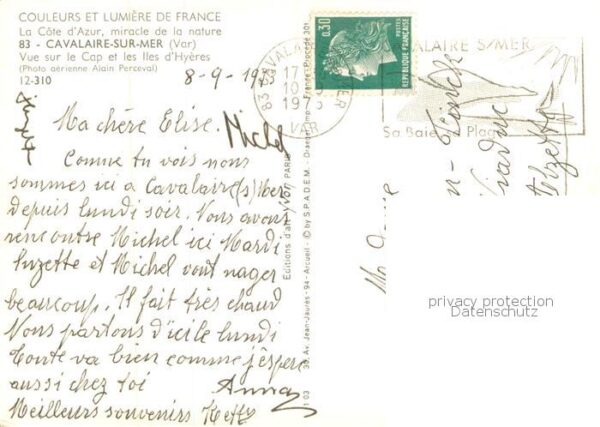 COULEURS ET LUMIÈRE DE FRANCE
La Côte d'Azur, miracle de la nature
83 - CAVALAIRE-SUR-MER (Var)
Vue sur le Cap et les Iles d'Hyères
(Photo aérienne Alain Perceval)
12-310
8-9-197
Ma chère Elise.
Michel
Comme tu vois nous
sommes ici a Cavalaire (s) Mer
depuis lundi soir. Nous avons
rencontre Michel ici Mardi
Suzette et Michel vont nager
beaucoup. Il fait très chaud
Nous partons d'ici le lundi
Toute va bien comme j'espere
aussi chez toi
Anna
Meilleurs souvenirs Ketty
Editions d'art Yvon, PARIS
39, Av. Jean-Jaurès - 94 - Arcueil - © by S.P.A.D.E.M. - Draeger Imp. France - Procédé 301
1 03
0,30
REPUBLIQUE FRANÇAISE
POSTES
83 CAVALAIRE MER
17
10
197
VAR
CAVALAIRE S/MER
Sa Baie Plage
Viaduc
privacy protection
Datenschutz